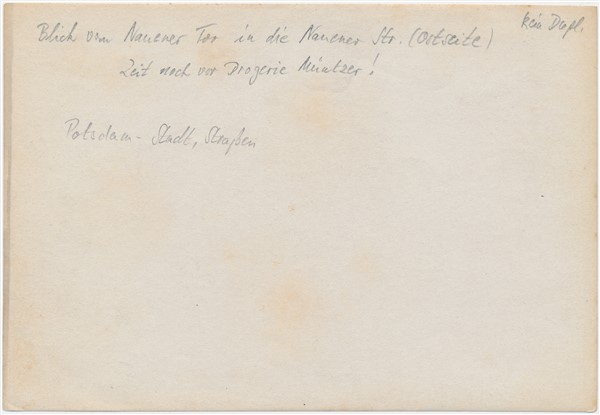 kein Dupl.
Blick vom Nauener Tor in die Nauener Str. (Ostseite)
Zeit noch vor Drogerie Müntzer!
Potsdam - Stadt, Straßen